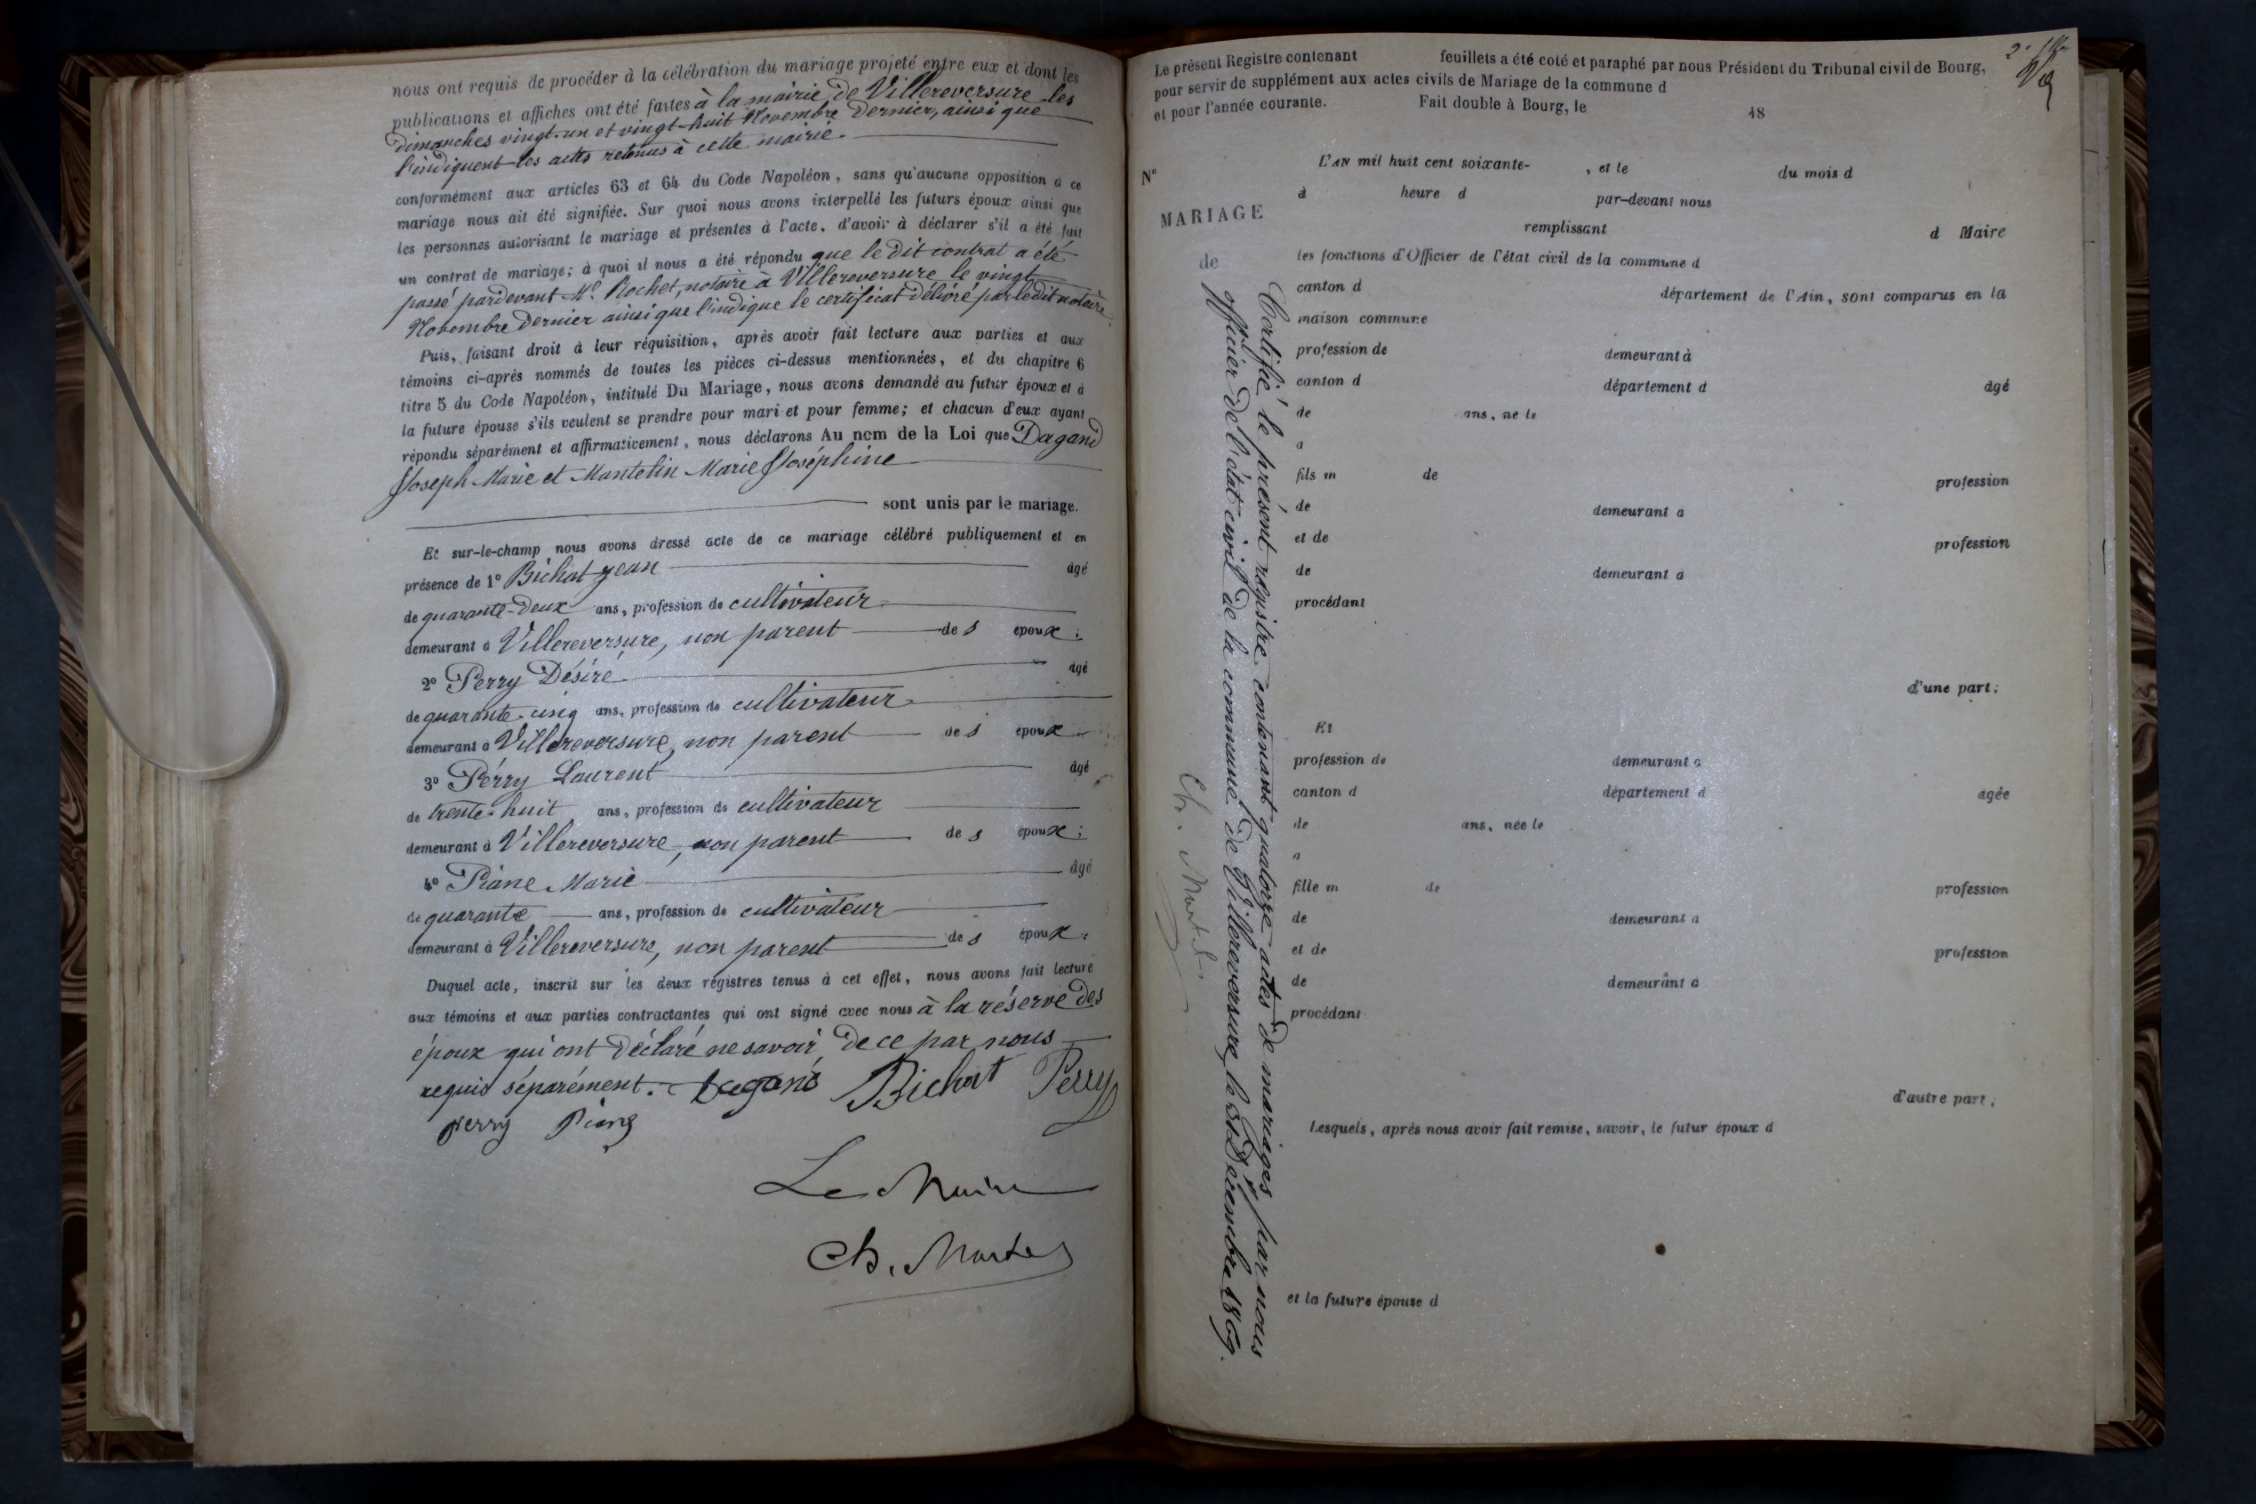 nous ont requis de procéder à la célébration du mariage projeté entre eux et dont les
publications et affiches ont été faites à la mairie de Villereversure les
dimanches vingt-un et vingt-huit Novembre dernier, ainsi que
l'indiquent les actes retenus à cette mairie.
conformément aux articles 63 et 64 du Code Napoléon, sans qu'aucune opposition à ce
mariage nous ait été signifiée. Sur quoi nous avons interpellé les futurs époux ainsi que
les personnes autorisant le mariage et présentes à l'acte, d'avoir à déclarer s'il a été fait
un contrat de mariage; à quoi il nous a été répondu que le dit contrat a été
passé pardevant Me Rochet, notaire à Villereversure le vingt
Novembre dernier ainsi que l'indique le certificat délivré par ledit notaire.
Puis, faisant droit à leur réquisition, après avoir fait lecture aux parties et aux
témoins ci-après nommés de toutes les pièces ci-dessus mentionnées, et du chapitre 6
titre 5 du Code Napoléon, intitulé Du Mariage, nous avons demandé au futur époux et à
la future épouse s'ils veulent se prendre pour mari et pour femme; et chacun d'eux ayant
répondu séparément et affirmativement, nous déclarons Au nom de la Loi que Dagand
Joseph Marie et Mantelin Marie Joséphine
sont unis par le mariage.
Et sur-le-champ nous avons dressé acte de ce mariage célébré publiquement et en
présence de 1° Bichat Jean âgé
de quarante-deux ans, profession de cultivateur
demeurant à Villereversure, non parent des époux;
2° Perry Désiré âgé
de quarante-cinq ans, profession de cultivateur
demeurant à Villereversure, non parent des époux
3° Perry Laurent âgé
de trente-huit ans, profession de cultivateur
demeurant à Villereversure, non parent des époux;
4° Piane Marie âgé
de quarante ans, profession de cultivateur
demeurant à Villereversure, non parent des époux.
Duquel acte, inscrit sur les deux registres tenus à cet effet, nous avons fait lecture
aux témoins et aux parties contractantes qui ont signé avec nous à la réserve des
époux qui ont déclaré ne savoir de ce par nous
requis séparément. Dagand Bichat Perry
perry Piane
Le Maire
Ch. Martel
2e flle
Le présent Registre contenant feuillets a été coté et paraphé par nous Président du Tribunal civil de Bourg,
pour servir de supplément aux actes civils de Mariage de la commune d
et pour l'année courante. Fait double à Bourg, le 18
N°
MARIAGE
de
L'AN mil huit cent soixante- , et le du mois d
à heure d par-devant nous
remplissant d Maire
les fonctions d'Officier de l'état civil de la commune d
canton d département de l'Ain, sont comparus en la
maison commune
profession de demeurant à
canton d département d âgé
de ans, né le
à
fils m de profession
de demeurant à
et de profession
de demeurant à
procédant
d'une part;
Et
profession de demeurant à
canton d département d âgée
de ans, née le
à
fille m de profession
de demeurant à
et de profession
de demeurant à
procédant
d'autre part;
Lesquels, après nous avoir fait remise, savoir, le futur époux d
et la future épouse d
Certifié le présent registre contenant quatorze actes de mariages, par nous
officier de l'état civil de la commune de Villereversure le 31 Décembre 1869.
Ch. Martel